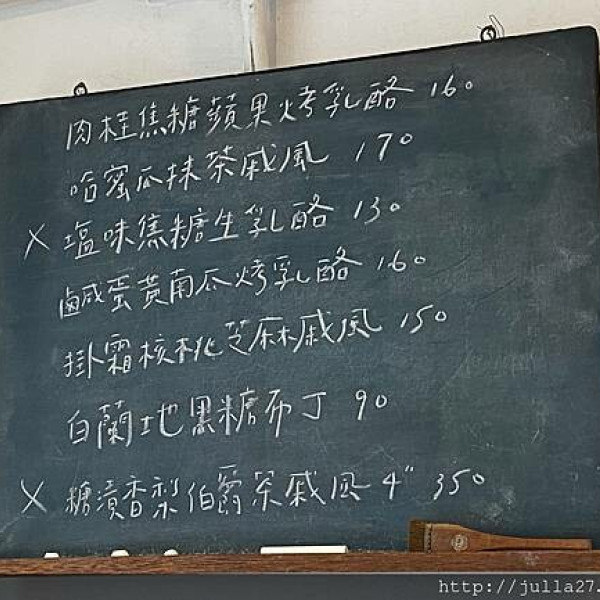 肉桂焦糖蘋果烤乳酪 160
哈蜜瓜抹茶戚風 170
X 塩味焦糖生乳酪 130
鹹蛋黃南瓜烤乳酪 160
掛霜核桃芝麻戚風 150
白蘭地黑糖布丁 90
X 糖漬香梨伯爵茶戚風 4" 350
http://julla27.